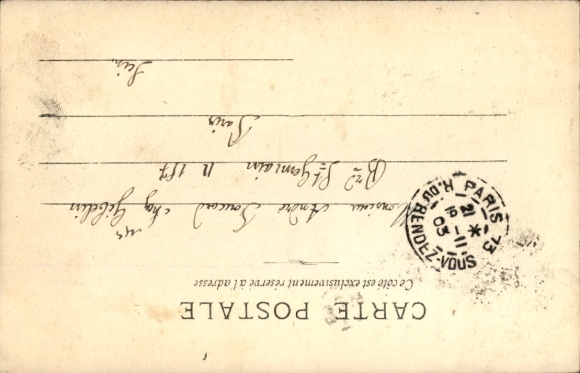 CARTE POSTALE
Ce côté est exclusivement réservé à l'adresse
Monsieur André chez
Bd St Germain n 157
Paris
PARIS 73
R. DU RENDEZ-VOUS
21 -11
03